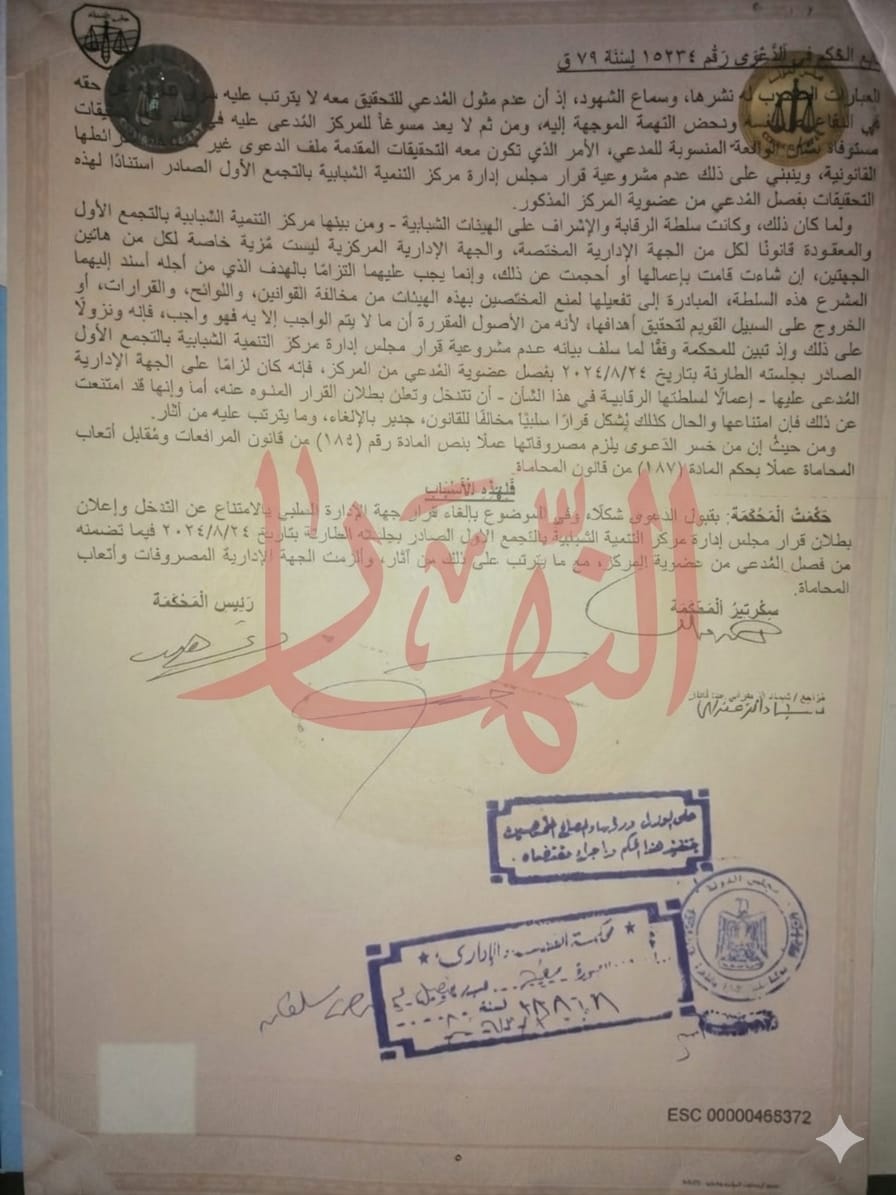 تابع الحُكم في الدَّعْوَى رَقْم ١٥٢٣٤ لِسَنَة ٧٩ ق
العبارات له نشرها، وسماع الشهود، إذ أن عدم مثول المُدعي للتحقيق معه لا يترتب عليه حقه
في ودحض التهمة الموجهة إليه، ومن ثم لا يعد مسوغاً للمركز المُدعى عليه في
مستوفاة بشأن الواقعة المنسوبة للمدعي، الأمر الذي تكون معه التحقيقات المقدمة ملف الدعوى غير
القانونية، وينبني على ذلك عدم مشروعية قرار مجلس إدارة مركز التنمية الشبابية بالتجمع الأول الصادر استنادًا لهذه
التحقيقات بفصل المُدعي من عضوية المركز المذكور.
ولما كان ذلك، وكانت سلطة الرقابة والإشراف على الهيئات الشبابية - ومن بينها مركز التنمية الشبابية بالتجمع الأول
والمعقودة قانونًا لكل من الجهة الإدارية المختصة، والجهة الإدارية المركزية ليست مُزية خاصة لكل من هاتين
الجهتين، إن شاءت قامت بإعمالها أو أحجمت عن ذلك، وإنما يجب عليهما التزامًا بالهدف الذي من أجله أسند إليهما
المشرع هذه السلطة، المبادرة إلى تفعيلها لمنع المختصين بهذه الهيئات من مخالفة القوانين، واللوائح، والقرارات، أو
الخروج على السبيل القويم لتحقيق أهدافها، لأنه من الأصول المقررة أن ما لا يتم الواجب إلا به فهو واجب، فإنه ونزولًا
على ذلك وإذ تبين للمحكمة وفقًا لما سلف بيانه عدم مشروعية قرار مجلس إدارة مركز التنمية الشبابية بالتجمع الأول
الصادر بجلسته الطارئة بتاريخ ٢٠٢٤/٨/٢٤ بفصل عضوية المُدعي من المركز، فإنه كان لزامًا على الجهة الإدارية
المُدعى عليها - إعمالًا لسلطتها الرقابية في هذا الشأن - أن تتدخل وتعلن بطلان القرار المنوه عنه، أما وإنها قد امتنعت
عن ذلك فإن امتناعها والحال كذلك يُشكل قرارًا سلبيًا مخالفًا للقانون، جدير بالإلغاء، وما يترتب عليه من آثار.
ومن حيثُ إن من خسر الدَعوى يلزم مصروفاتها عملًا بنص المادة رقم (١٨٤) من قانون المرافعات ومُقابل أتعاب
المحاماة عملًا بحكم المادة (١٨٧) من قانون المحاماة.
فَلِهَذِه الْأَسْبَاب
حَكَمَتْ المَحْكَمَة: بقبول الدعوى شكلًا، وفي الموضوع بإلغاء قرار جهة الإدارة السلبي بالامتناع عن التدخل وإعلان
بطلان قرار مجلس إدارة مركز التنمية الشبابية بالتجمع الأول الصادر بجلسته الطارئة بتاريخ ٢٠٢٤/٨/٢٤ فيما تضمنه
من فصل المُدعي من عضوية المركز، مع ما يترتب على ذلك من آثار، وألزمت الجهة الإدارية المصروفات وأتعاب
المحاماة.
سِكْرتيرُ المَحْكَمَة
رَئيس المَحْكَمَة
النهار
على الوزراء ورؤساء المصالح المختصين
بتنفيذ هذا الحكم وإجراء مقتضاه.
مجلس الدولة
محكمة القضاء الإداري
ESC 00000465372
٥